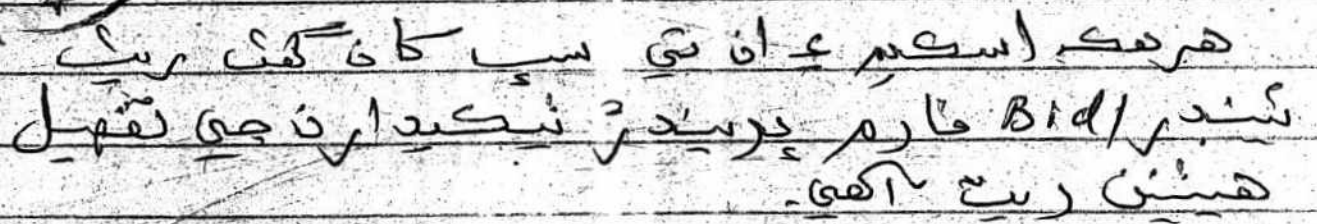 هر هڪ اسڪيم ۽ ان تي سڀ کان گھٽ ريٽ
ٽينڊر/Bid فارم ڀريندڙ ٺيڪيدارن جي تفصيل
هيٺين ريت آهي.